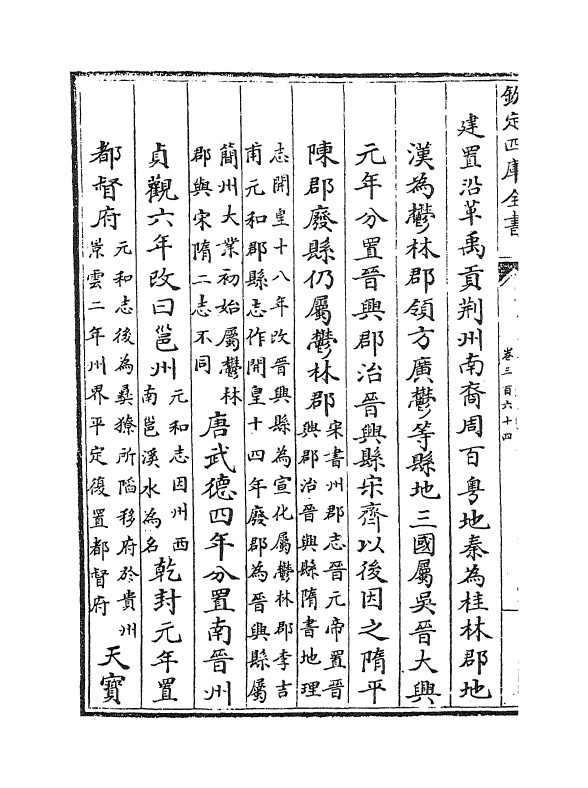 欽定四庫全書
卷三百六十四
建置沿革禹貢荆州南裔周百粤地秦為桂林郡地
漢為鬱林郡領方廣鬱等縣地三國屬吳晉大興
元年分置晉興郡治晉興縣宋齊以後因之隋平
陳郡廢縣仍屬鬱林郡宋書州郡志晉元帝置晉興郡治晉興縣隋書地理
志開皇十八年改晉興縣為宣化屬鬱林郡李吉甫元和郡縣志作開皇十四年廢郡為晉興縣屬
簡州大業初始屬鬱林郡與宋隋二志不同唐武德四年分置南晉州
貞觀六年改曰邕州元和志因州西南邕溪水為名乾封元年置
都督府元和志後為彞獠所陷移府於貴州景雲二年州界平定復置都督府天寶